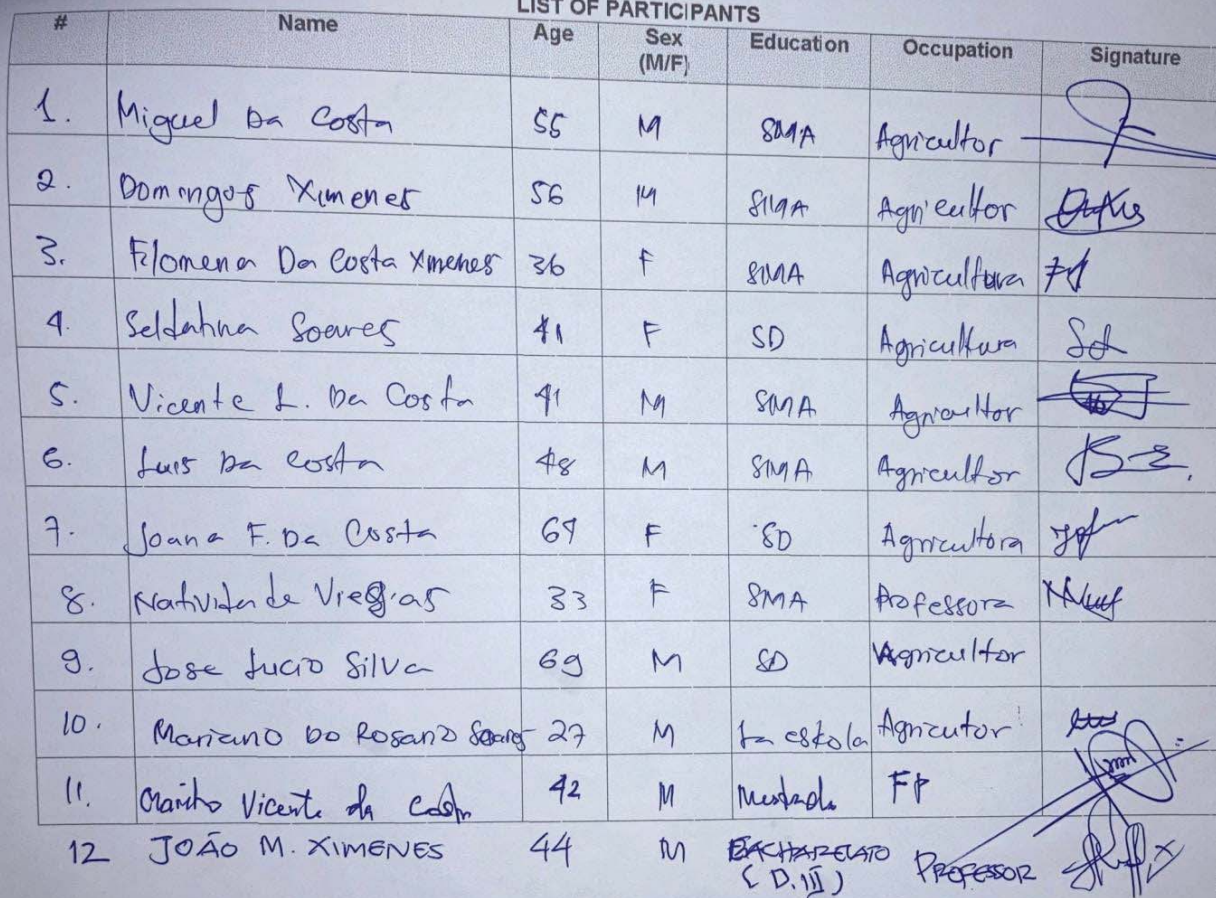 LIST OF PARTICIPANTS
# Name Age Sex (M/F) Education Occupation Signature
1. Miguel Da Costa 55 M SMA Agricultor
2. Domingos Ximenes 56 M SMA Agricultor
3. Filomena Da Costa Ximenes 36 F SMA Agricultura
4. Soares 41 F SD Agricultura
5. Vicente L. Da Costa 41 M SMA Agricultor
6. Luis Da Costa 48 M SMA Agricultor
7. Joana F. Da Costa F SD Agricultora
8. Natividade Viegas 33 F SMA Professora
9. Jose Lucio Silva 69 M SD Agricultor
10. Mariano Do Rosario Soares 27 M La eskola Agricutor
11. Vicente da Costa 42 M Mestrado FP
12 JOÃO M. XIMENES 44 M BACHARELATO PROFESSOR
(D.III)